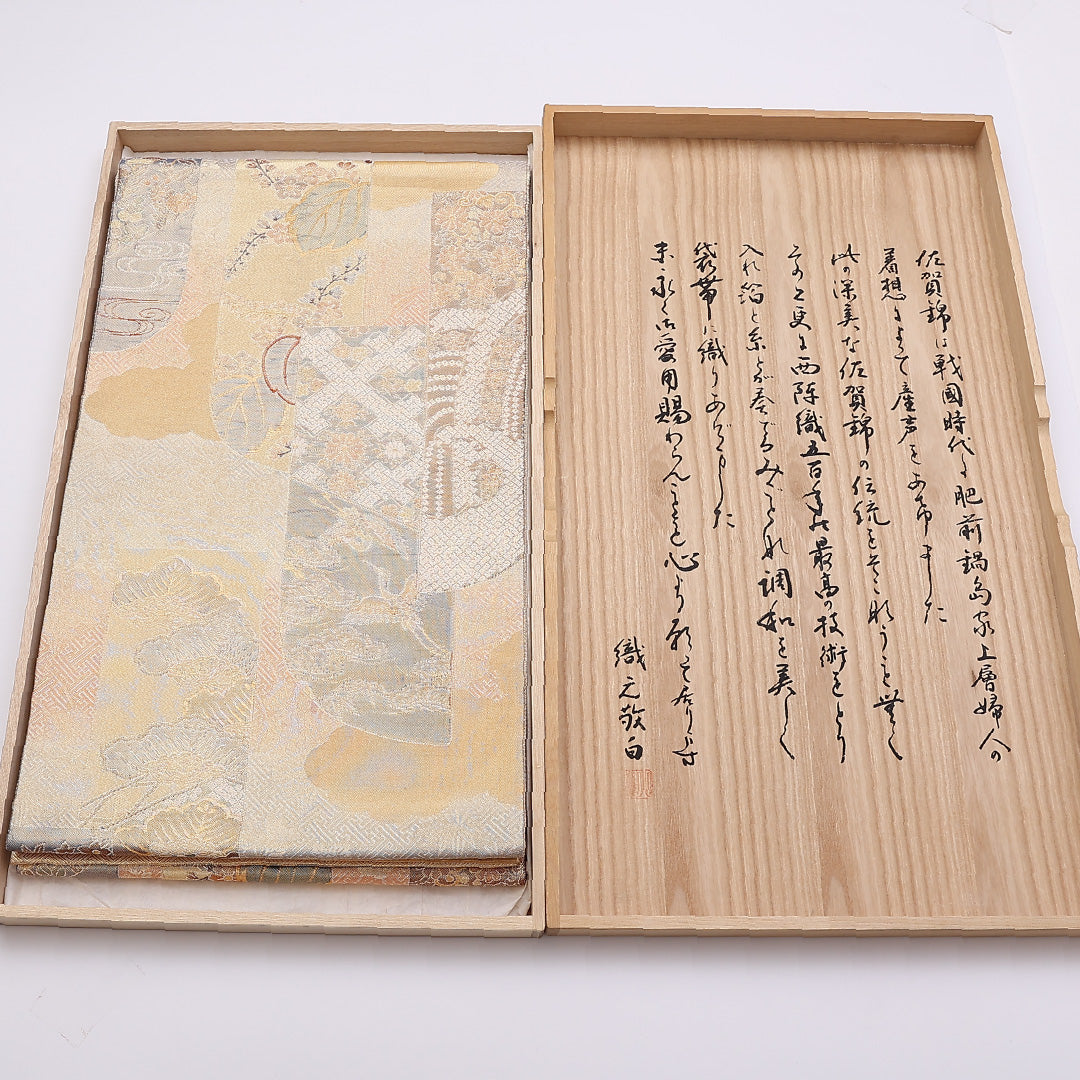 佐賀錦は戦國時代に肥前鍋島家上層婦人の
着想によって産声をあげました
此の深美な佐賀錦の伝統をそこねうこと無く
その上更に西陣織五百年の最高の技術をとり
入れ箔と糸とが奏でるみごとな調和を美しく
袋帯に織りあげました
末永く御愛用賜わらんことを心より願って居ります
織元敬白